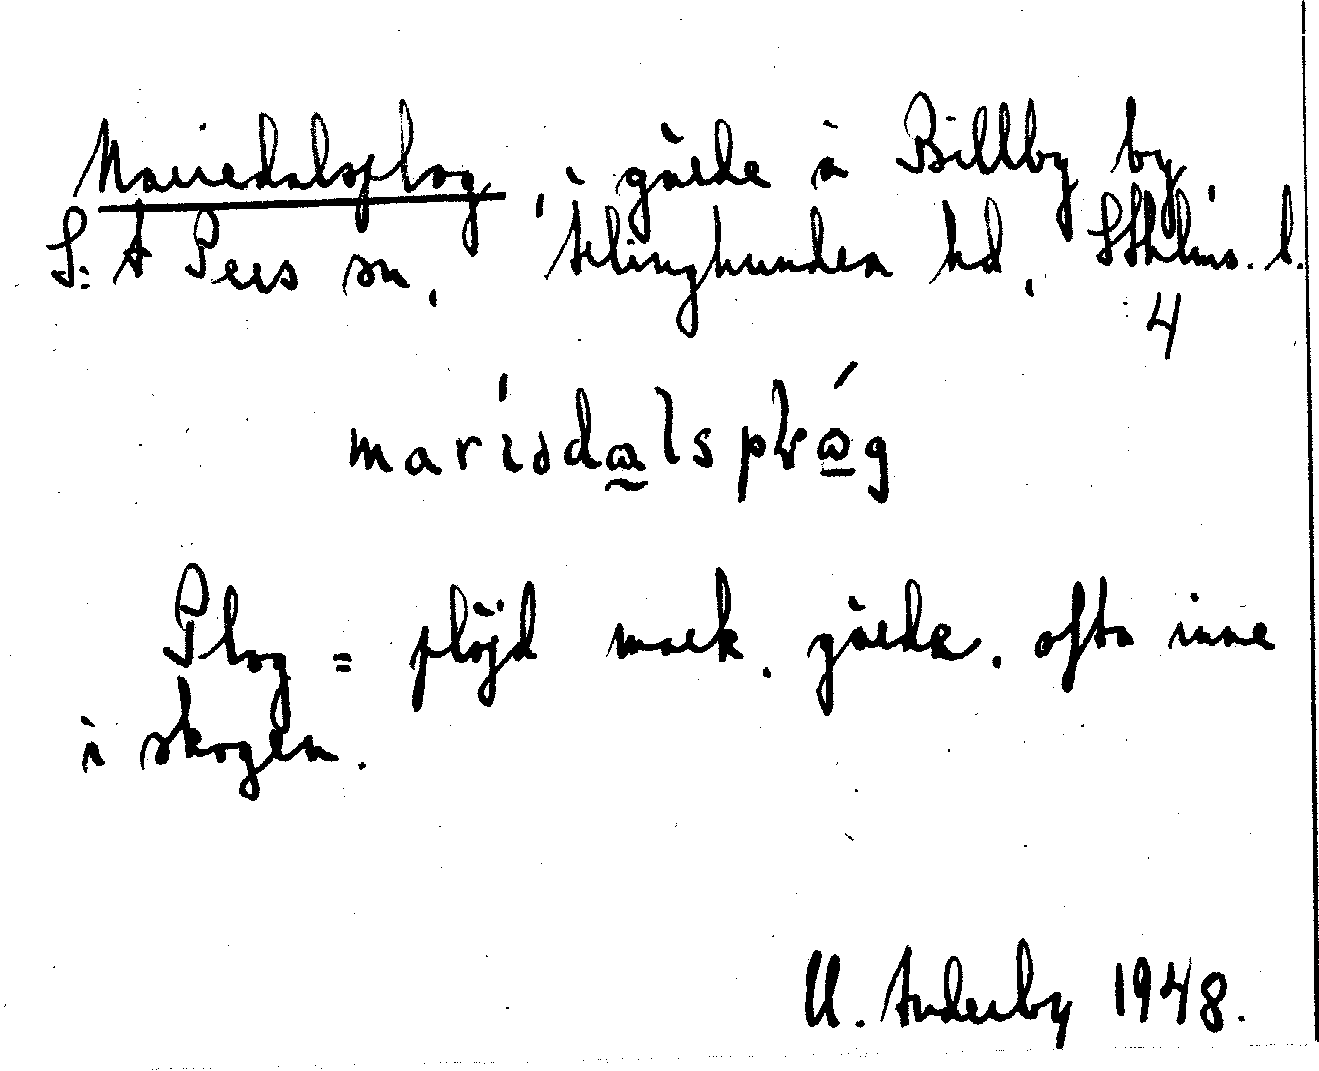 Mariedalsplog, i gärde å Billby by,
S:t Pers sn, Ärlinghundra hd, Sthlms. l.
4
plöjd mark. gärde. ofta inne
Plog =
i skogen.
U. Anderby 1948.